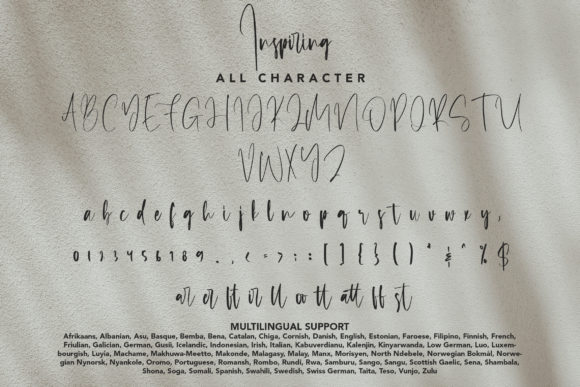 Inspiring
ALL CHARACTER
ABCDEFGHIJKLMNOPQRSTU
VWXYZ
a b c d e f g h i j k l n o p q r s t u v w x y ,
0 1 2 3 4 5 6 7 8 9 . , < = > ; : [ ] { } ( ) * & ^ % $
ar er ft ir ll oo tt att ff st
MULTILINGUAL SUPPORT
Afrikaans, Albanian, Asu, Basque, Bemba, Bena, Catalan, Chiga, Cornish, Danish, English, Estonian, Faroese, Filipino, Finnish, French,
Friulian, Galician, German, Gusii, Icelandic, Indonesian, Irish, Italian, Kabuverdianu, Kalenjin, Kinyarwanda, Low German, Luo, Luxem-
bourgish, Luyia, Machame, Makhuwa-Meetto, Makonde, Malagasy, Malay, Manx, Morisyen, North Ndebele, Norwegian Bokmål, Norwe-
gian Nynorsk, Nyankole, Oromo, Portuguese, Romansh, Rombo, Rundi, Rwa, Samburu, Sango, Sangu, Scottish Gaelic, Sena, Shambala,
Shona, Soga, Somali, Spanish, Swahili, Swedish, Swiss German, Taita, Teso, Vunjo, Zulu